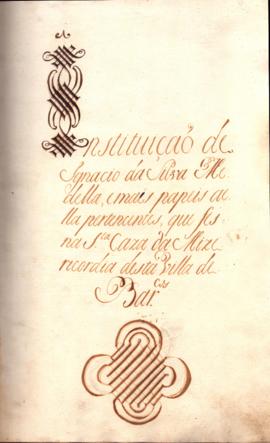 Instituiçaõ de
Ignacio da Silva Me
della, e mais papeis a e
lla pertencentes, que fes
na S.ta Caza da Mize
ricordia desta Villa de
Bar.cos